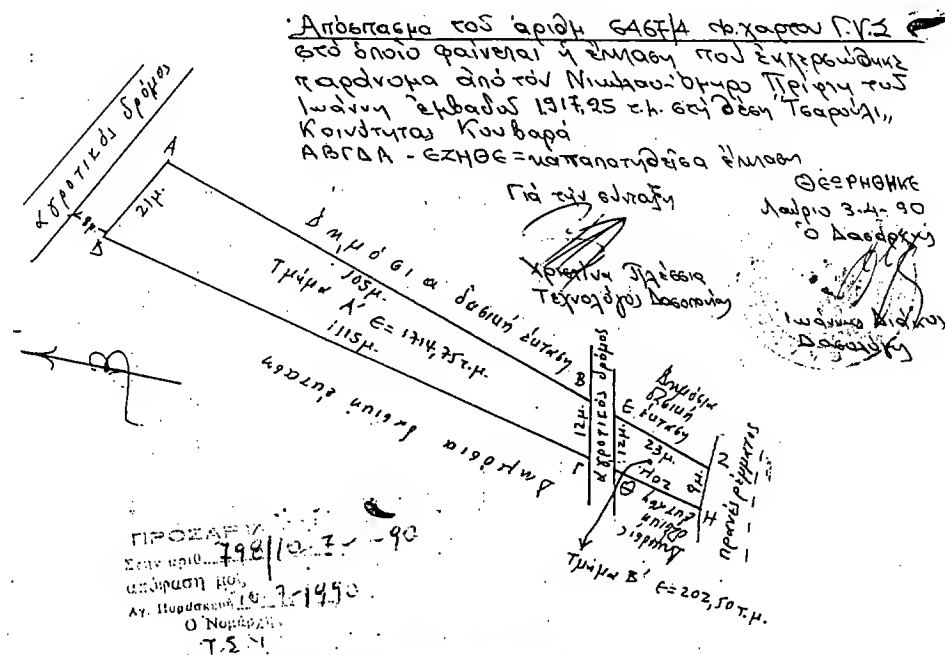 Απόσπασμα τοῦ ἀριθμ 6467/4 φ. χάρτου Γ.Υ.Σ
στό ὁποῖο φαίνεται ἡ ἔκταση πού ἐκχερσώθηκε
παράνομα ἀπό τόν Νικόλαο-Ὅμηρο Πρίφτη τοῦ
Ἰωάννη ἐμβαδοῦ 1917,25 τ.μ. στή θέση "Τσαρούλι"
Κοινότητας Κουβαρά
ΑΒΓΔΑ - ΕΖΗΘΕ = καταπατηθεῖσα ἔκταση
Γιά τήν σύνταξη
Χριστίνα Πλέσσια
Τεχνολόγος Δασοπονίας
ΘΕΩΡΗΘΗΚΕ
Λαύριο 3-4-90
Ὁ Δασάρχης
Ιωάννης
Δασολόγος
ἀγροτικός δρόμος
Α
21μ.
Δ
Δημόσια δασική ἔκταση
105μ.
Τμῆμα Α' Ε = 1714,75 τ.μ.
1115μ.
Δημόσια δασική ἔκταση
Β
12μ.
Γ
ἀγροτικός δρόμος
Ε
12μ.
Θ
Δημόσια
δασική
ἔκταση
23μ.
20μ.
Ζ
9μ.
Η
Δημόσια
δασική
ἔκταση
πρανές ρέμματος
Τμῆμα Β' Ε=202,50 τ.μ.
Στήν αριθ. 798/10-7-90
απόφαση μας
Αγ. Παρασκευή 10-7-1990
Ο Νομάρχης